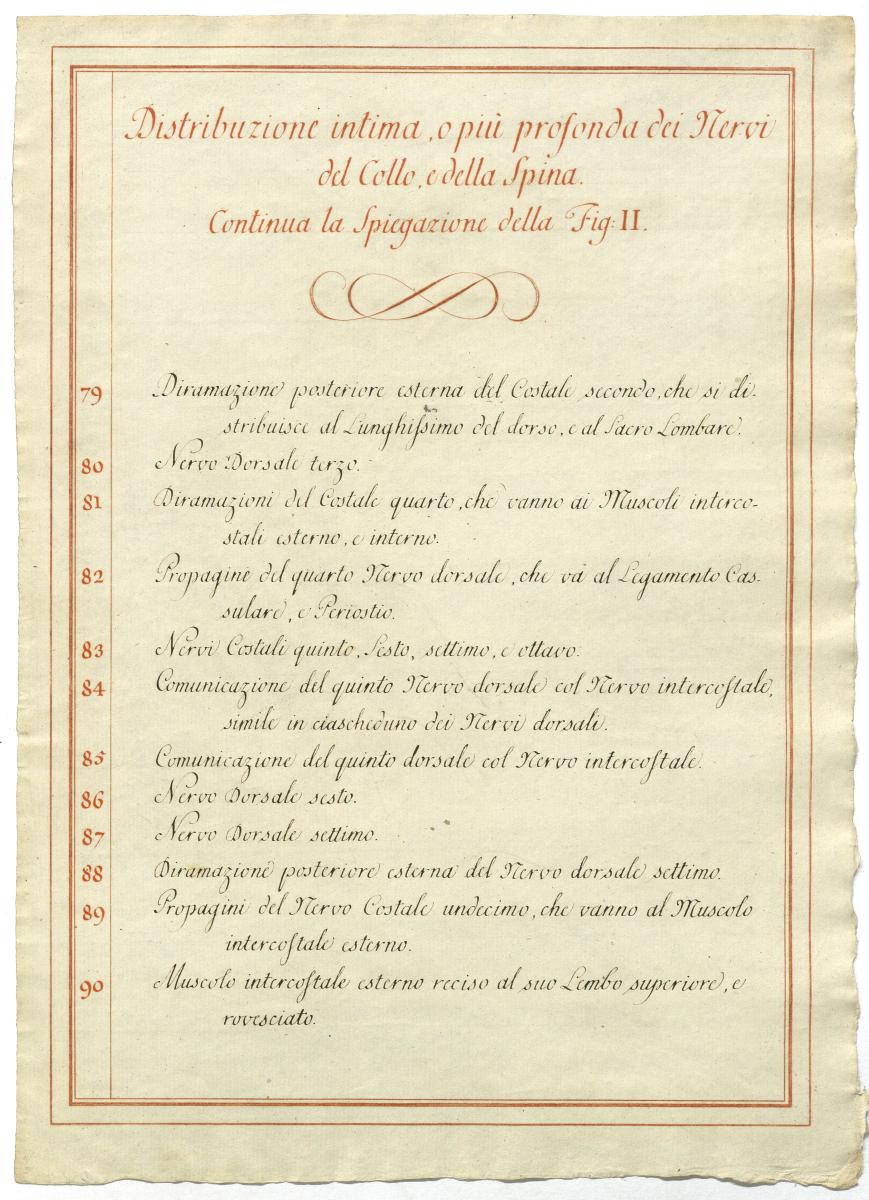 Distribuzione intima, o più profonda dei Nervi
del Collo, e della Spina.
Continua la Spiegazione della Fig: II.
79 Diramazione posteriore esterna del Costale secondo, che si di-
stribuisce al Lunghissimo del dorso, e al Sacro Lombare.
80 Nervo Dorsale terzo.
81 Diramazioni del Costale quarto, che vanno ai Muscoli interco-
stali esterno, e interno.
82 Propagine del quarto Nervo dorsale, che và al Legamento Cas-
sulare, e Periostio.
83 Nervi Costali quinto, Sesto, settimo, e ottavo.
84 Comunicazione del quinto Nervo dorsale col Nervo intercostale,
simile in ciascheduno dei Nervi dorsali.
85 Comunicazione del quinto dorsale col Nervo intercostale.
86 Nervo Dorsale sesto.
87 Nervo Dorsale settimo.
88 Diramazione posteriore esterna del Nervo dorsale settimo.
89 Propagini del Nervo Costale undecimo, che vanno al Muscolo
intercostale esterno.
90 Muscolo intercostale esterno reciso al suo Lembo superiore, e
rovesciato.